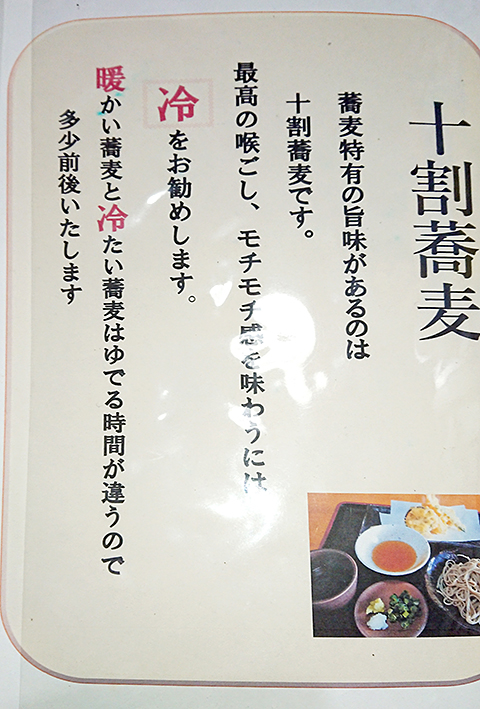 十割蕎麦
蕎麦特有の旨味があるのは
十割蕎麦です。
最高の喉ごし、モチモチ感を味わうには
冷をお勧めします。
暖かい蕎麦と冷たい蕎麦はゆでる時間が違うので
多少前後いたします